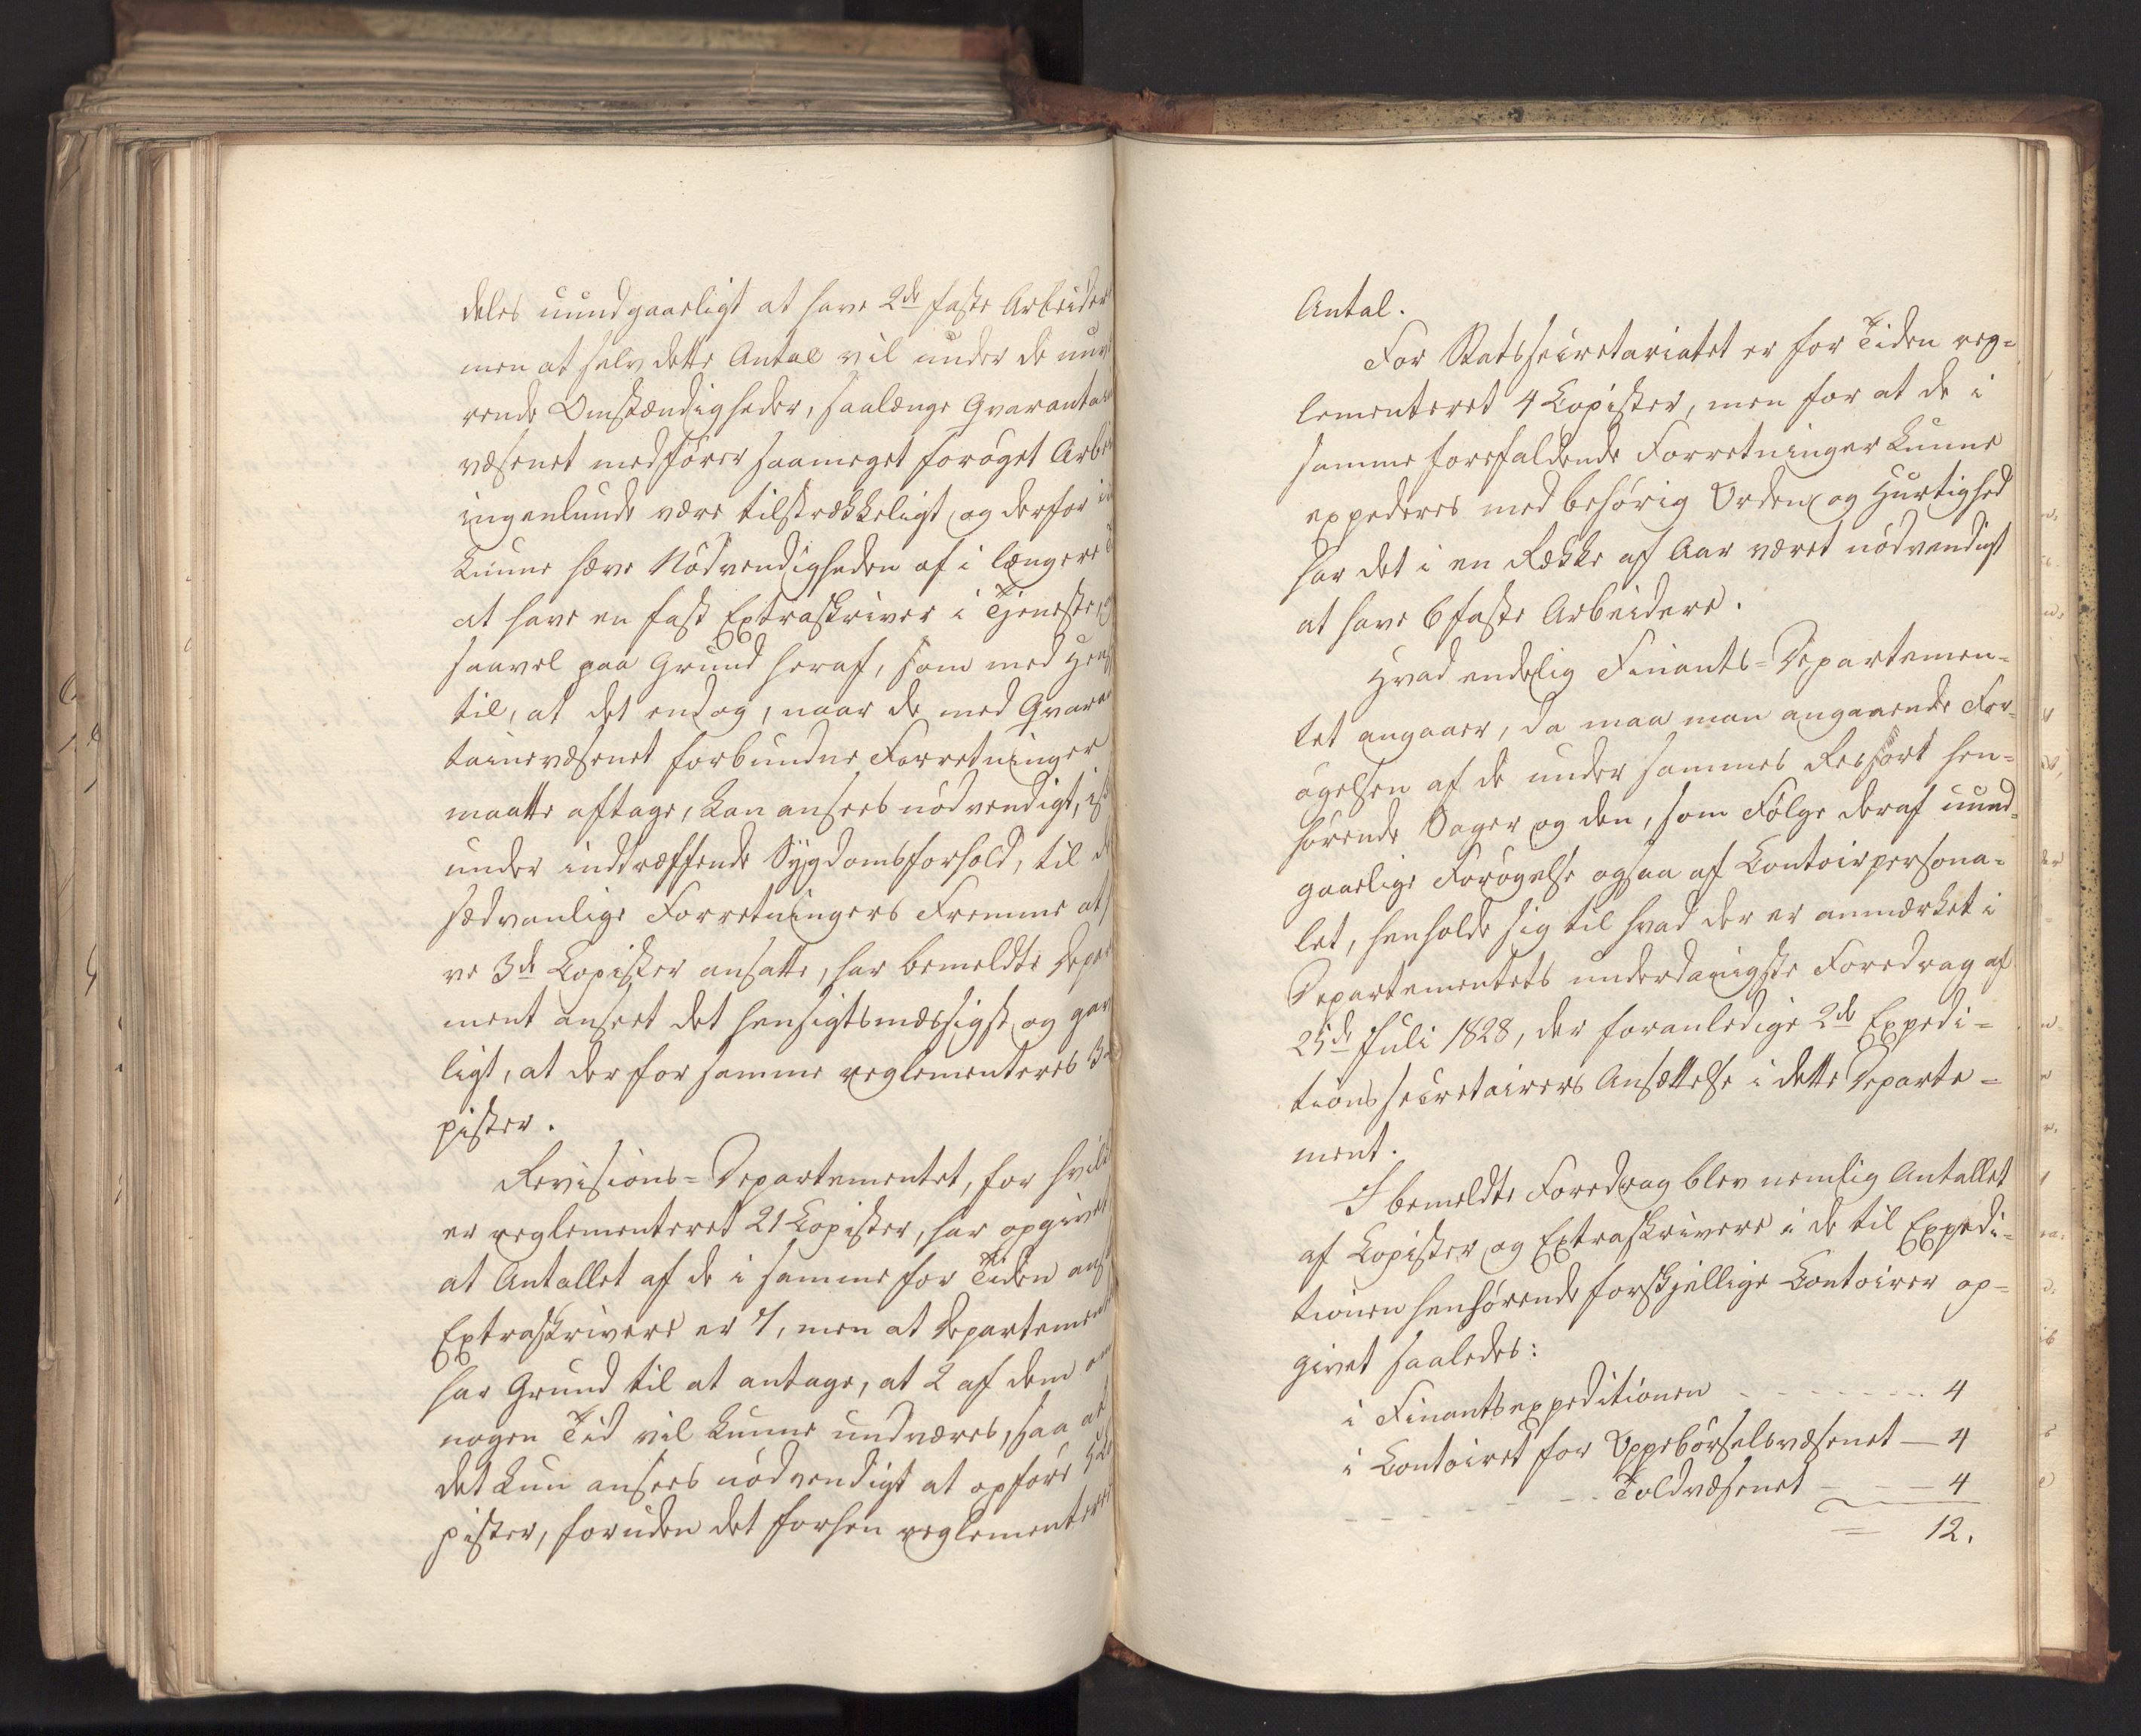 deles uundgaaeligt at have 2de faste Arbeider
men at selv dette Antal vil under de nuvæ
rende Omstændigheder, saalænge Qvarantai
væsenet medfører saameget forøget Arbei
ingenlunde være tilstrækkeligt, og derfor i
kunne hæve Nödvendigheden af i længere T
at have en fast Extraskriver i Tjeneste, og
saavel paa Grund heraf, som med Hens
til, at det endog, naar de med Qvaran
tainevæsenet forbundne Forretninger
maatte aftage, kan ansees nödvendigt, is
under indtræffende Sygdomsforhold, til d
sædvanlige Forretningers Fremme at
ve 3de Copister ansatte, har bemeldte Depar
ment anseet det hensigtsmæssigst og gav
ligt, at der for samme reglementeres 3
pister.
Revisions-Departementet, for hvilk
er reglementeret 21 Copister, har opgivet
at Antallet af de i samme for Tiden ans
Extraskrivere er 7, men at Departement
har Grund til at antage, at 2 af dem om
nogen Tid vil kunne undværes, saa at
det kun ansees nödvendigt at opföre 5 Co
pister, foruden det forhen reglementeret
Antal.
For Statssecretariatet er for Tiden reg-
lementeret 4 Copister, men for at de i
samme forefaldende Forretninger kunne
expederes med behörig Orden og Hurtighed
har det i en Række af Aar været nödvendigt
at have 6 faste Arbeidere.
Hvad endelig Finants-Departemen-
tet angaaer, da maa man angaaende For-
ögelsen af de under sammes Ressort hen-
hörende Sager og den, som Fölge deraf uund-
gaaelige Forögelse ogsaa af Contoirpersona-
let, henholde sig til hvad der er anmærket i
Departementets underdanigste Foredrag af
25de Juli 1828, der foranledige 2de Expedi-
tionssecretairers Ansættelse i dette Departe-
ment.
I bemeldte Foredrag blev nemlig Antallet
af Copister og Extraskrivere i de til Expedi-
tionen henhörende forskjellige Contoirer op-
givet saaledes:
i Finantsexpeditionen - - - - - - - - 4
i Contoiret for Oppebörselsvæsenet — 4
- - - - - - Toldvæsenet - - — 4
= 12.